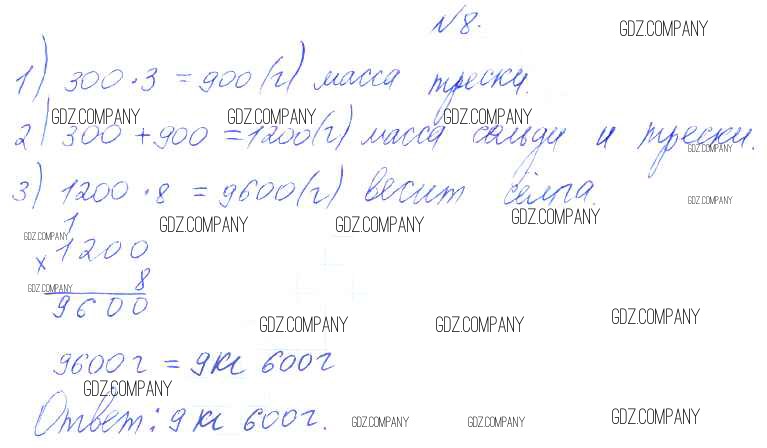 N8.
GDZ.COMPANY
1) 300 · 3 = 900 (г) масса трески.
GDZ.COMPANY GDZ.COMPANY GDZ.COMPANY
2) 300 + 900 = 1200 (г) масса сельди и трески.
GDZ.COMPANY
3) 1200 · 8 = 9600 (г) весит сёмга.
GDZ.COMPANY
GDZ.COMPANY GDZ.COMPANY GDZ.COMPANY
1
GDZ.COMPANY
× 1200
8
GDZ.COMPANY
9600
GDZ.COMPANY GDZ.COMPANY GDZ.COMPANY
9600 г = 9 кг 600 г
GDZ.COMPANY
Ответ: 9 кг 600 г.
GDZ.COMPANY GDZ.COMPANY GDZ.COMPANY